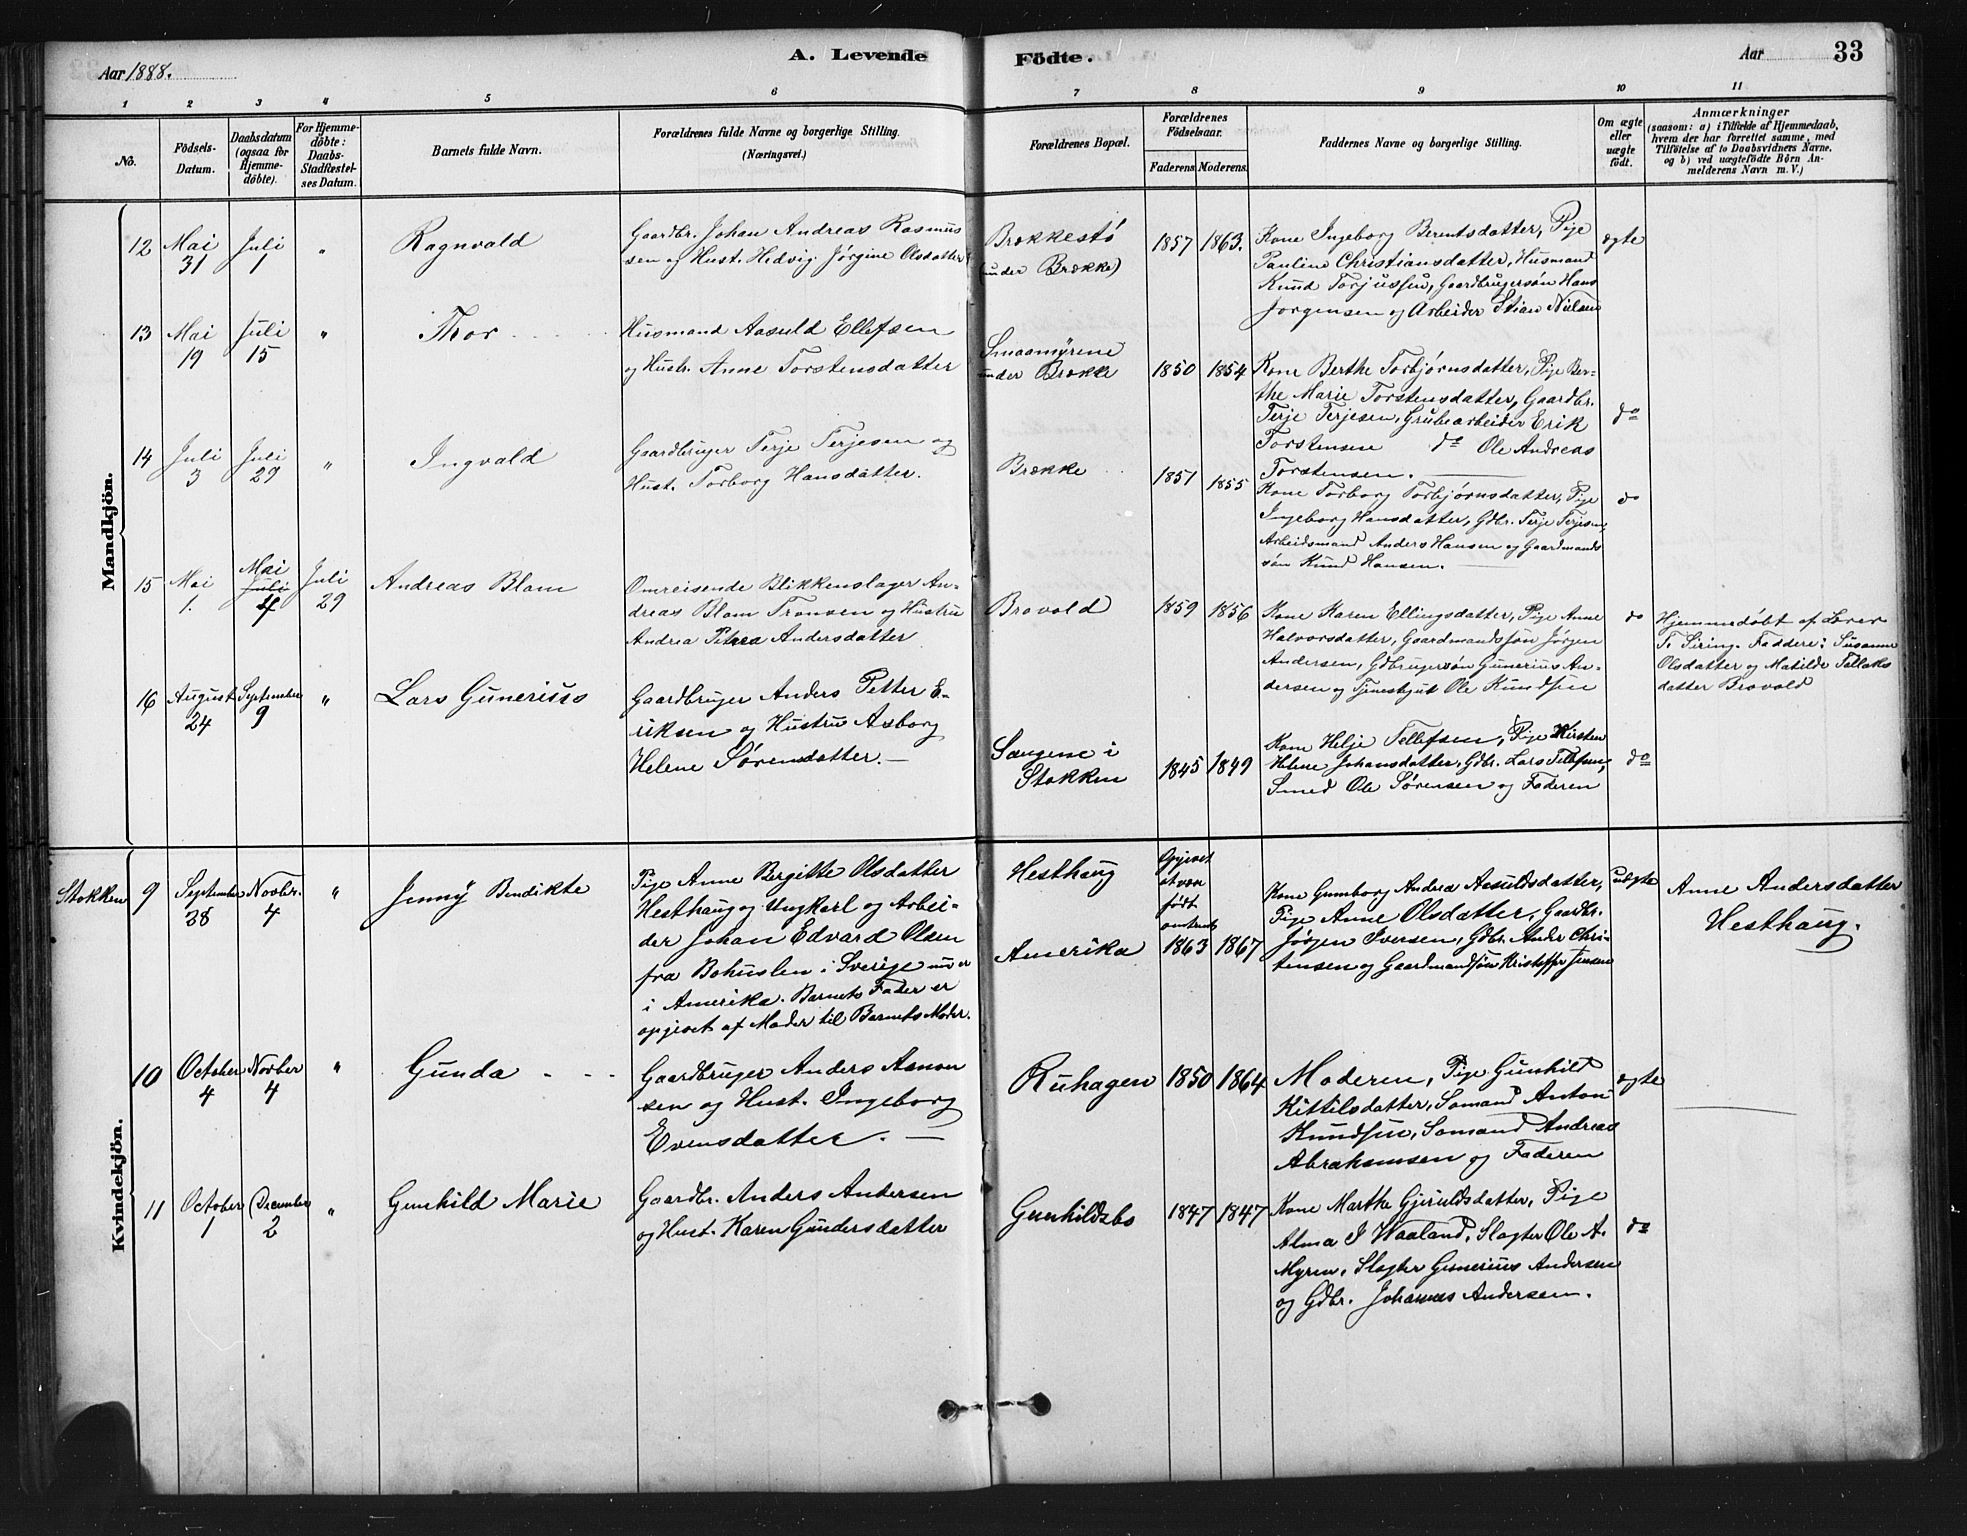 Aar 1888.
A. Levende
Födte.
Aar
33
1 2 3 4 5 6 7 8 9 10 11
No.
Födsels-
Datum.
Daabsdatum
(ogsaa for
Hjemme-
döbte).
For Hjemme-
döbte:
Daabs-
Stadfæstel-
ses Datum.
Barnets fulde Navn.
Forældrenes fulde Navne og borgerlige Stilling.
(Næringsvei.)
Forældrenes Bopæl.
Forældrenes
Födselsaar.
Faderens.
Moderens.
Faddernes Navne og borgerlige Stilling.
Om ægte
eller
uægte
födt.
Anmærkninger
(saasom: a) i Tilfælde af Hjemmedaab,
hvem der har forrettet samme, med
Tilföielse af to Daabsvidners Navne,
og b) ved uægtefödte Börn An-
melderens Navn m. V.)
Mandkjön.
12
Mai
31
Juli
1
"
Ragnvald
Gaardbr. Johan Andreas Rasmus
sen og Hust. Hedvig Jørgine Olsdatter
Brækkestø
(under Brække)
1857
1863.
Kone Ingeborg Berentsdatter, Pige
Pauline Christiansdatter, Husmand
Knud Torjussen, Gaardbrugersøn Hans
Jørgensen og Arbeider Stian Nielsen
ægte
13
Mai
19
Juli
15
"
Thor
Husmand Aasuld Ellefsen
og Hustr. Anne Torstensdatter
Smaamyrene
under Brække
1850
1854
Kone Berthe Torbjørnsdatter, Pige Ber-
the Marie Torstensdatter, Gaardbr.
Terje Terjesen, Grubearbeider Erik
Torstensen do Ole Andreas
Torstensen.
do
14
Juli
3
Juli
29
"
Ingvald
Gaardbruger Terje Terjesen og
Hust. Torborg Hansdatter.
Brække
1857
1855
Kone Torborg Torbjørnsdatter, Pige
Ingeborg Hansdatter, Gdbr. Terje Terjesen,
Arbeidsmand Anders Hansen og Gaardmands
søn Knud Hansen.
do
15
Mai
1.
Mai
Juli
4
Juli
29
Andreas Blom
Omreisende Blikkenslager An-
dreas Blom Tronsen og Hustru
Andrea Petrea Andersdatter
Brovold
1859
1856
Kone Karen Ellingsdatter, Pige Anne
Halvorsdatter, Gaardmandssøn Jørgen
Andersen, Gdbrugersøn Gunerius An-
dersen og Tjenestgut Ole Knudsen
do
Hjemmedøbt af Lærer
T. Siring. Faddere: Susanne
Olsdatter og Matilde Tellaks
datter Brovold
16
August
24
September
9
"
Lars Gunerius
Gaardbruger Anders Petter E-
riksen og Hustru Asborg
Helene Sørensdatter.
Sangene i
Stokken
1845
1849
Kone Helje Tellefsen, Pige Kirsten
Helene Johansdatter, Gdbr. Lars Tellefsen,
Smed Ole Sørensen og Faderen
do
Kvindekjön.
Stokken
9
September
28
Novbr.
4
"
Jenny Bendikte
Pige Anne Bergitte Olsdatter
Hesthaug og Ungkarl og Arbei-
der Johan Edvard Olsen
fra Bohuslen i Sverige nu er
i Amerika. Barnets Fader er
opgivet af Moder til Barnets Moder.
Hesthaug
Amerika
Opgivet
at være
født
omtrent
1863
1867
Kone Gunborg Andrea Aasuldsdatter,
Pige Anne Olsdatter, Gaardbr.
Jørgen Iversen, Gdbr. Ander Chri-
stensen og Gaardmandssøn Kristoffer Jensen
uægte
Anne Andersdatter
Hesthaug.
10
October
4
Novber
4
"
Gunda
Gaardbruger Anders Asmon
sen og Hust. Ingeborg
Evensdatter.
Ruhagen
1850
1864
Moderen, Pige Gunhild
Kittilsdatter, Sømand Anton
Knudsen, Sømand Andreas
Abrahamsen og Faderen
ægte
11
October
1
December
2
"
Gunhild Marie
Gaardbr. Anders Andersen
og Hust. Karen Gundersdatter
Gunhildsbo
1847
1847
Kone Marthe Gjeruldsdatter, Pige
Alma J Waaland, Slagter Ole A.
Myren, Slagter Gunerius Andersen
og Gdbr. Johannes Andersen.
do